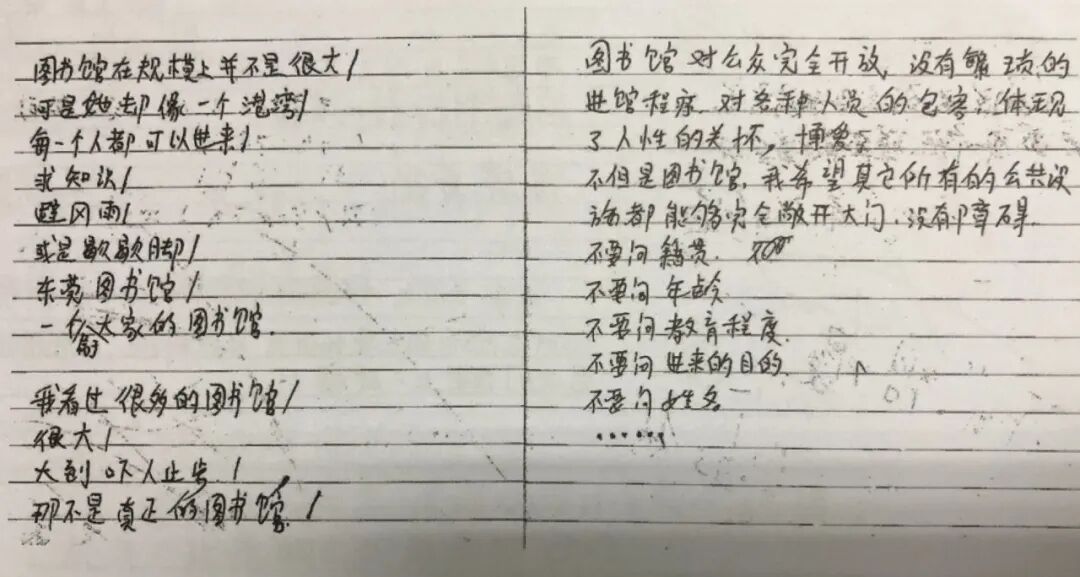 图书馆在规模上并不是很大/
可是她却像一个港湾/
每一个人都可以进来/
求知识/
避风雨/
或是歇歇脚/
东莞图书馆/
一个属于大家的图书馆.
我看过很多的图书馆/
很大/
大到吓人止步./
那不是真正的图书馆./
图书馆对公众完全开放,没有繁琐的
进馆程序.对各种人员的包容,体现
了人性的关怀,博爱.
不但是图书馆,我希望其它所有的公共设
施都能够完全敞开大门.没有障碍.
不要问籍贯.
不要问年龄
不要问教育程度.
不要问进来的目的.
不要问姓名
.......